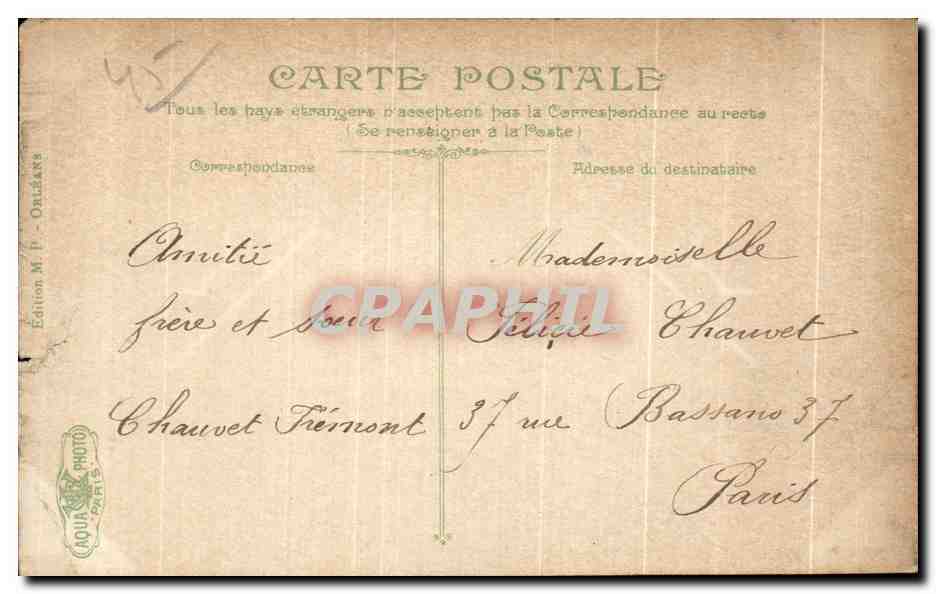 45
CARTE POSTALE
Tous les pays étrangers n'acceptent pas la Correspondance au recto
(Se renseigner à la Poste)
Correspondance
Adresse du destinataire
Amitié
frère et soeur
Chauvet Frémont
Mademoiselle
Félicie Chauvet
37 rue Bassano 37
Paris
CPAPHIL
Edition M. P. - ORLÉANS
AQUA PHOTO
PARIS